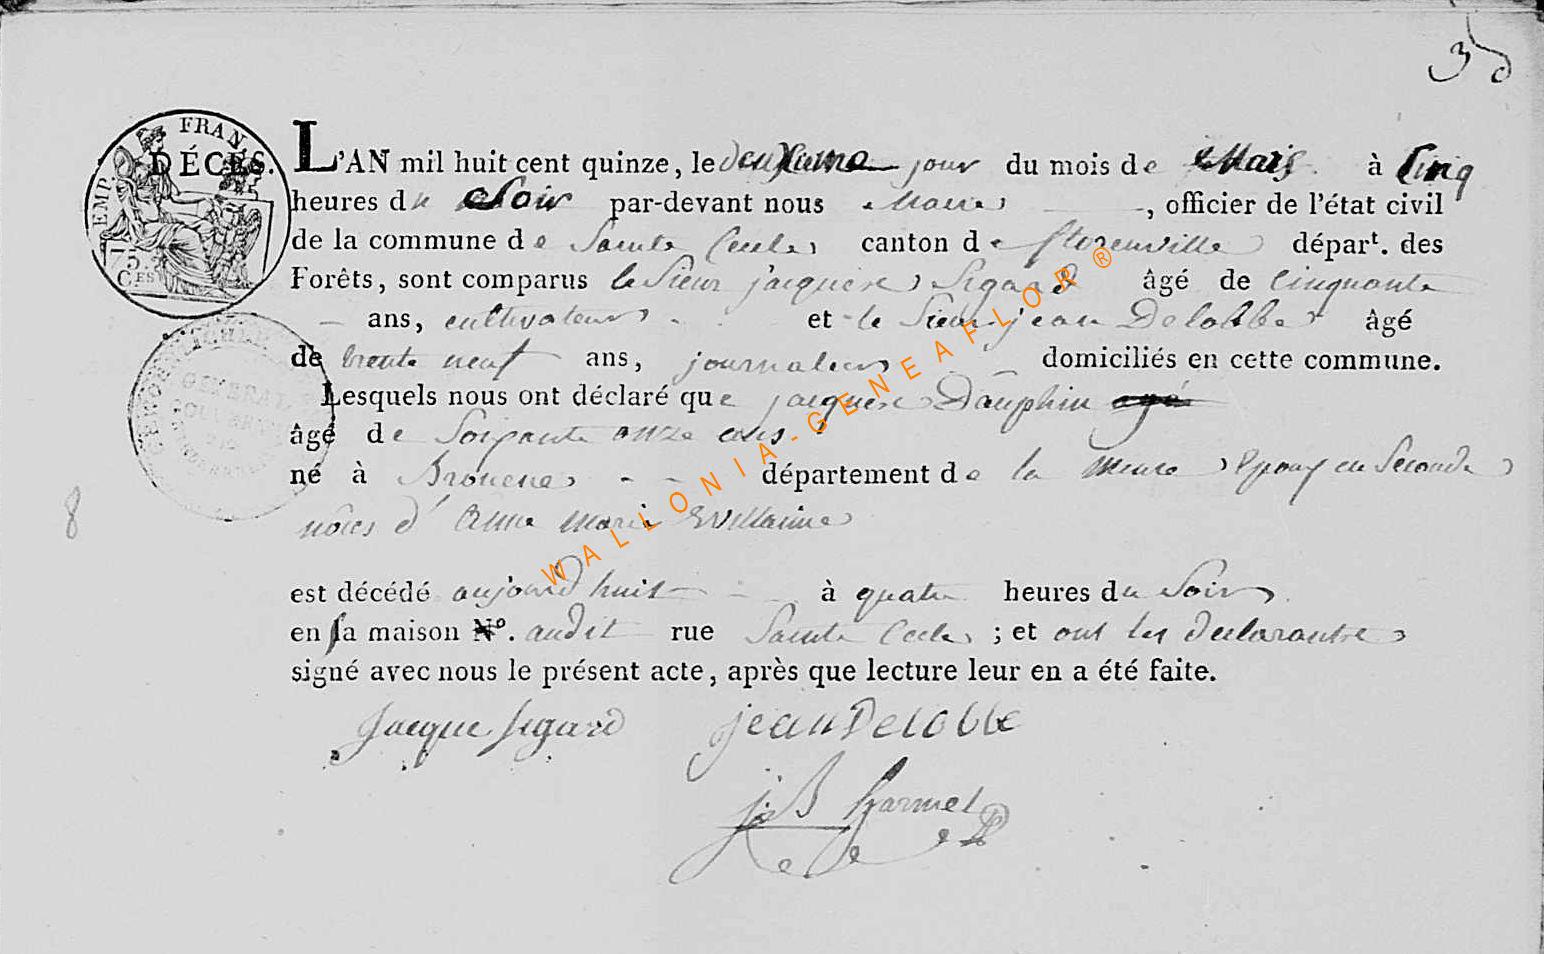 3
FRAN
EMP.
75
CES
DÉCÈS. L'AN mil huit cent quinze, le deuxieme jour du mois de Mars à Cinq
heures du Soir par-devant nous Maire, officier de l'état civil
de la commune de Sainte Cecile canton de florenville départ. des
Forêts, sont comparus le Sieur jacques Sigard âgé de Cinquante
ans, cultivateur et le Sieur jean Delobbe âgé
de trente neuf ans, journalier domiciliés en cette commune.
Lesquels nous ont déclaré que jacques Dauphin agé
âgé de Soixante onze ans
né à Brouene département de la Meuse Epoux en Seconde
nôces d' Anne Marie Willaime
8
est décédé aujourd huit à quatre heures du Soir
en sa maison N°. audit rue Sainte Cecile ; et ont les declarantre
signé avec nous le présent acte, après que lecture leur en a été faite.
Jacque Sigard jean Delobbe
jB harmel
GENERAL
GOUVERN
WALLONIA-GENEAFLOR ®